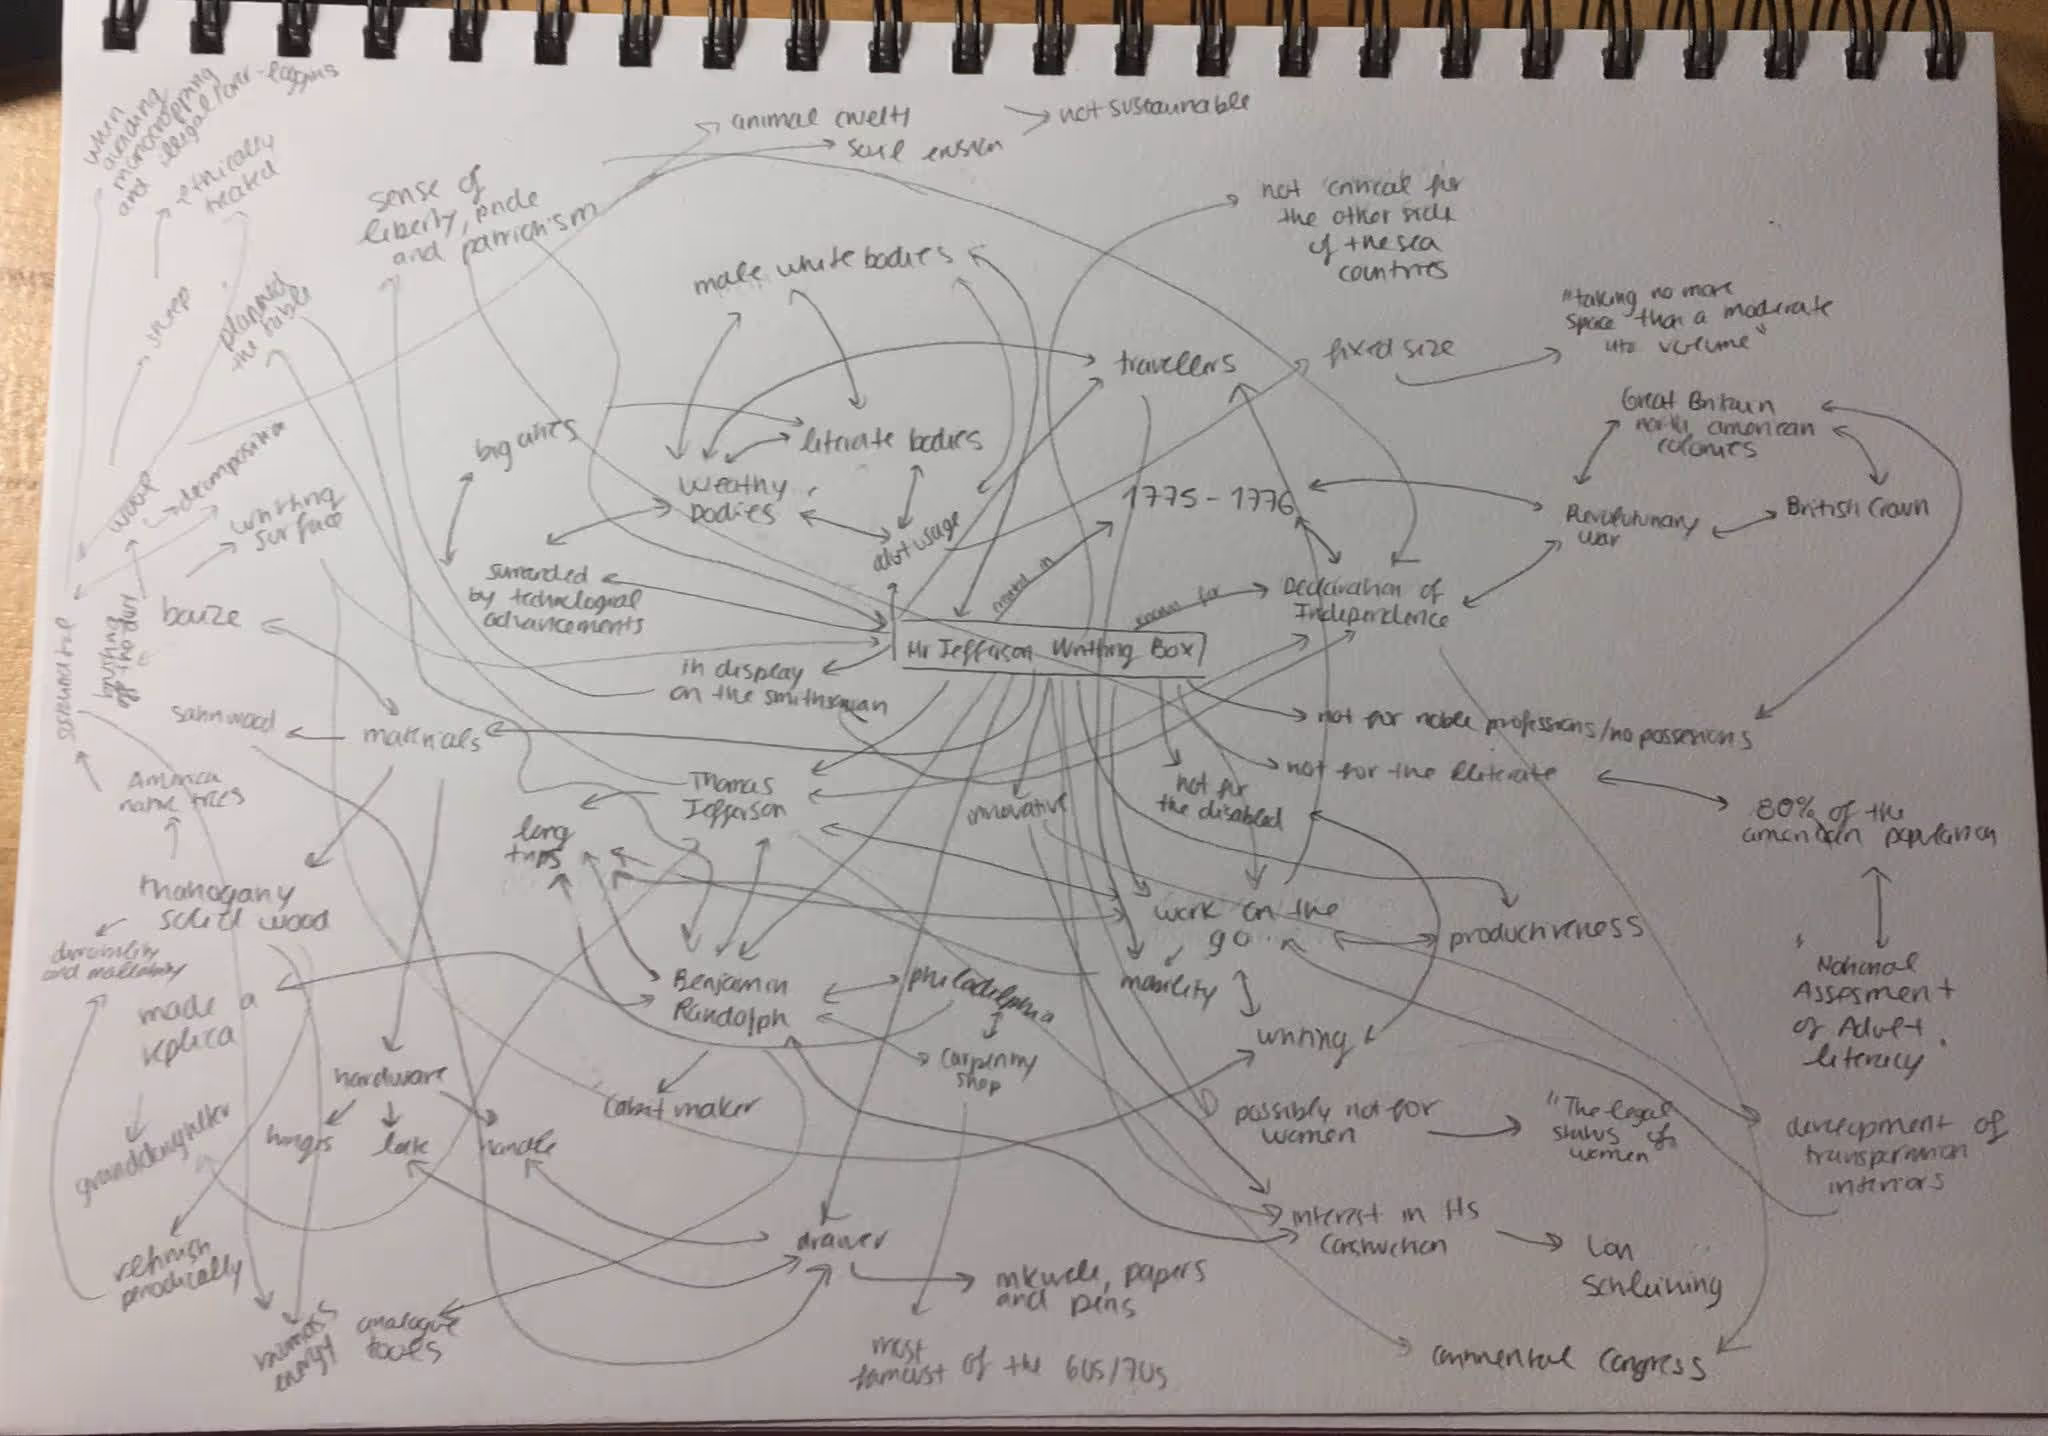 when
avoiding
monocropping
and illegal/over-logging
ethically
treated
sheep
animal cruelty
soil erosion
not sustainable
sense of
liberty, pride
and patriotism
planned
the table
male white bodies
not critical for
the other side
of the sea
countries
"taking no more
space than a moderate
volume"
travellers
fixed size
Great Britain
north american
colonies
big cities
literate bodies
decomposing
writing
surface
Weathy
bodies
adult usage
1775 - 1776
Revolutionary
war
British Crown
surrounded
by technological
advancements
created in
known for
Declaration of
Independence
baize
Mr Jefferson Writting Box
in display
on the smithsonian
sustainable
satinwood
materials
not for noble professions/no possesions
not for the illiterate
not for
the disabled
America
native trees
Thomas
Jefferson
innovative
80% of the
american population
long
trips
mahogany
solid wood
durability
and malleability
work on the
go
productiveness
made a
replica
Benjamin
Randolph
philadelphia
mobility
National
Assesment
of Adult
literacy
writing
carpentry
shop
hardware
cabinet maker
granddaughter
hinges
lock
handle
possibly not for
women
"The legal
status of
women"
development of
transportation
interiors
refinish
periodically
drawer
interest in its
construction
Lon
Schleining
inkwell, papers
and pens
biomass
energy
analogue
tools
most
famoust of the 60s/70s
continental congress